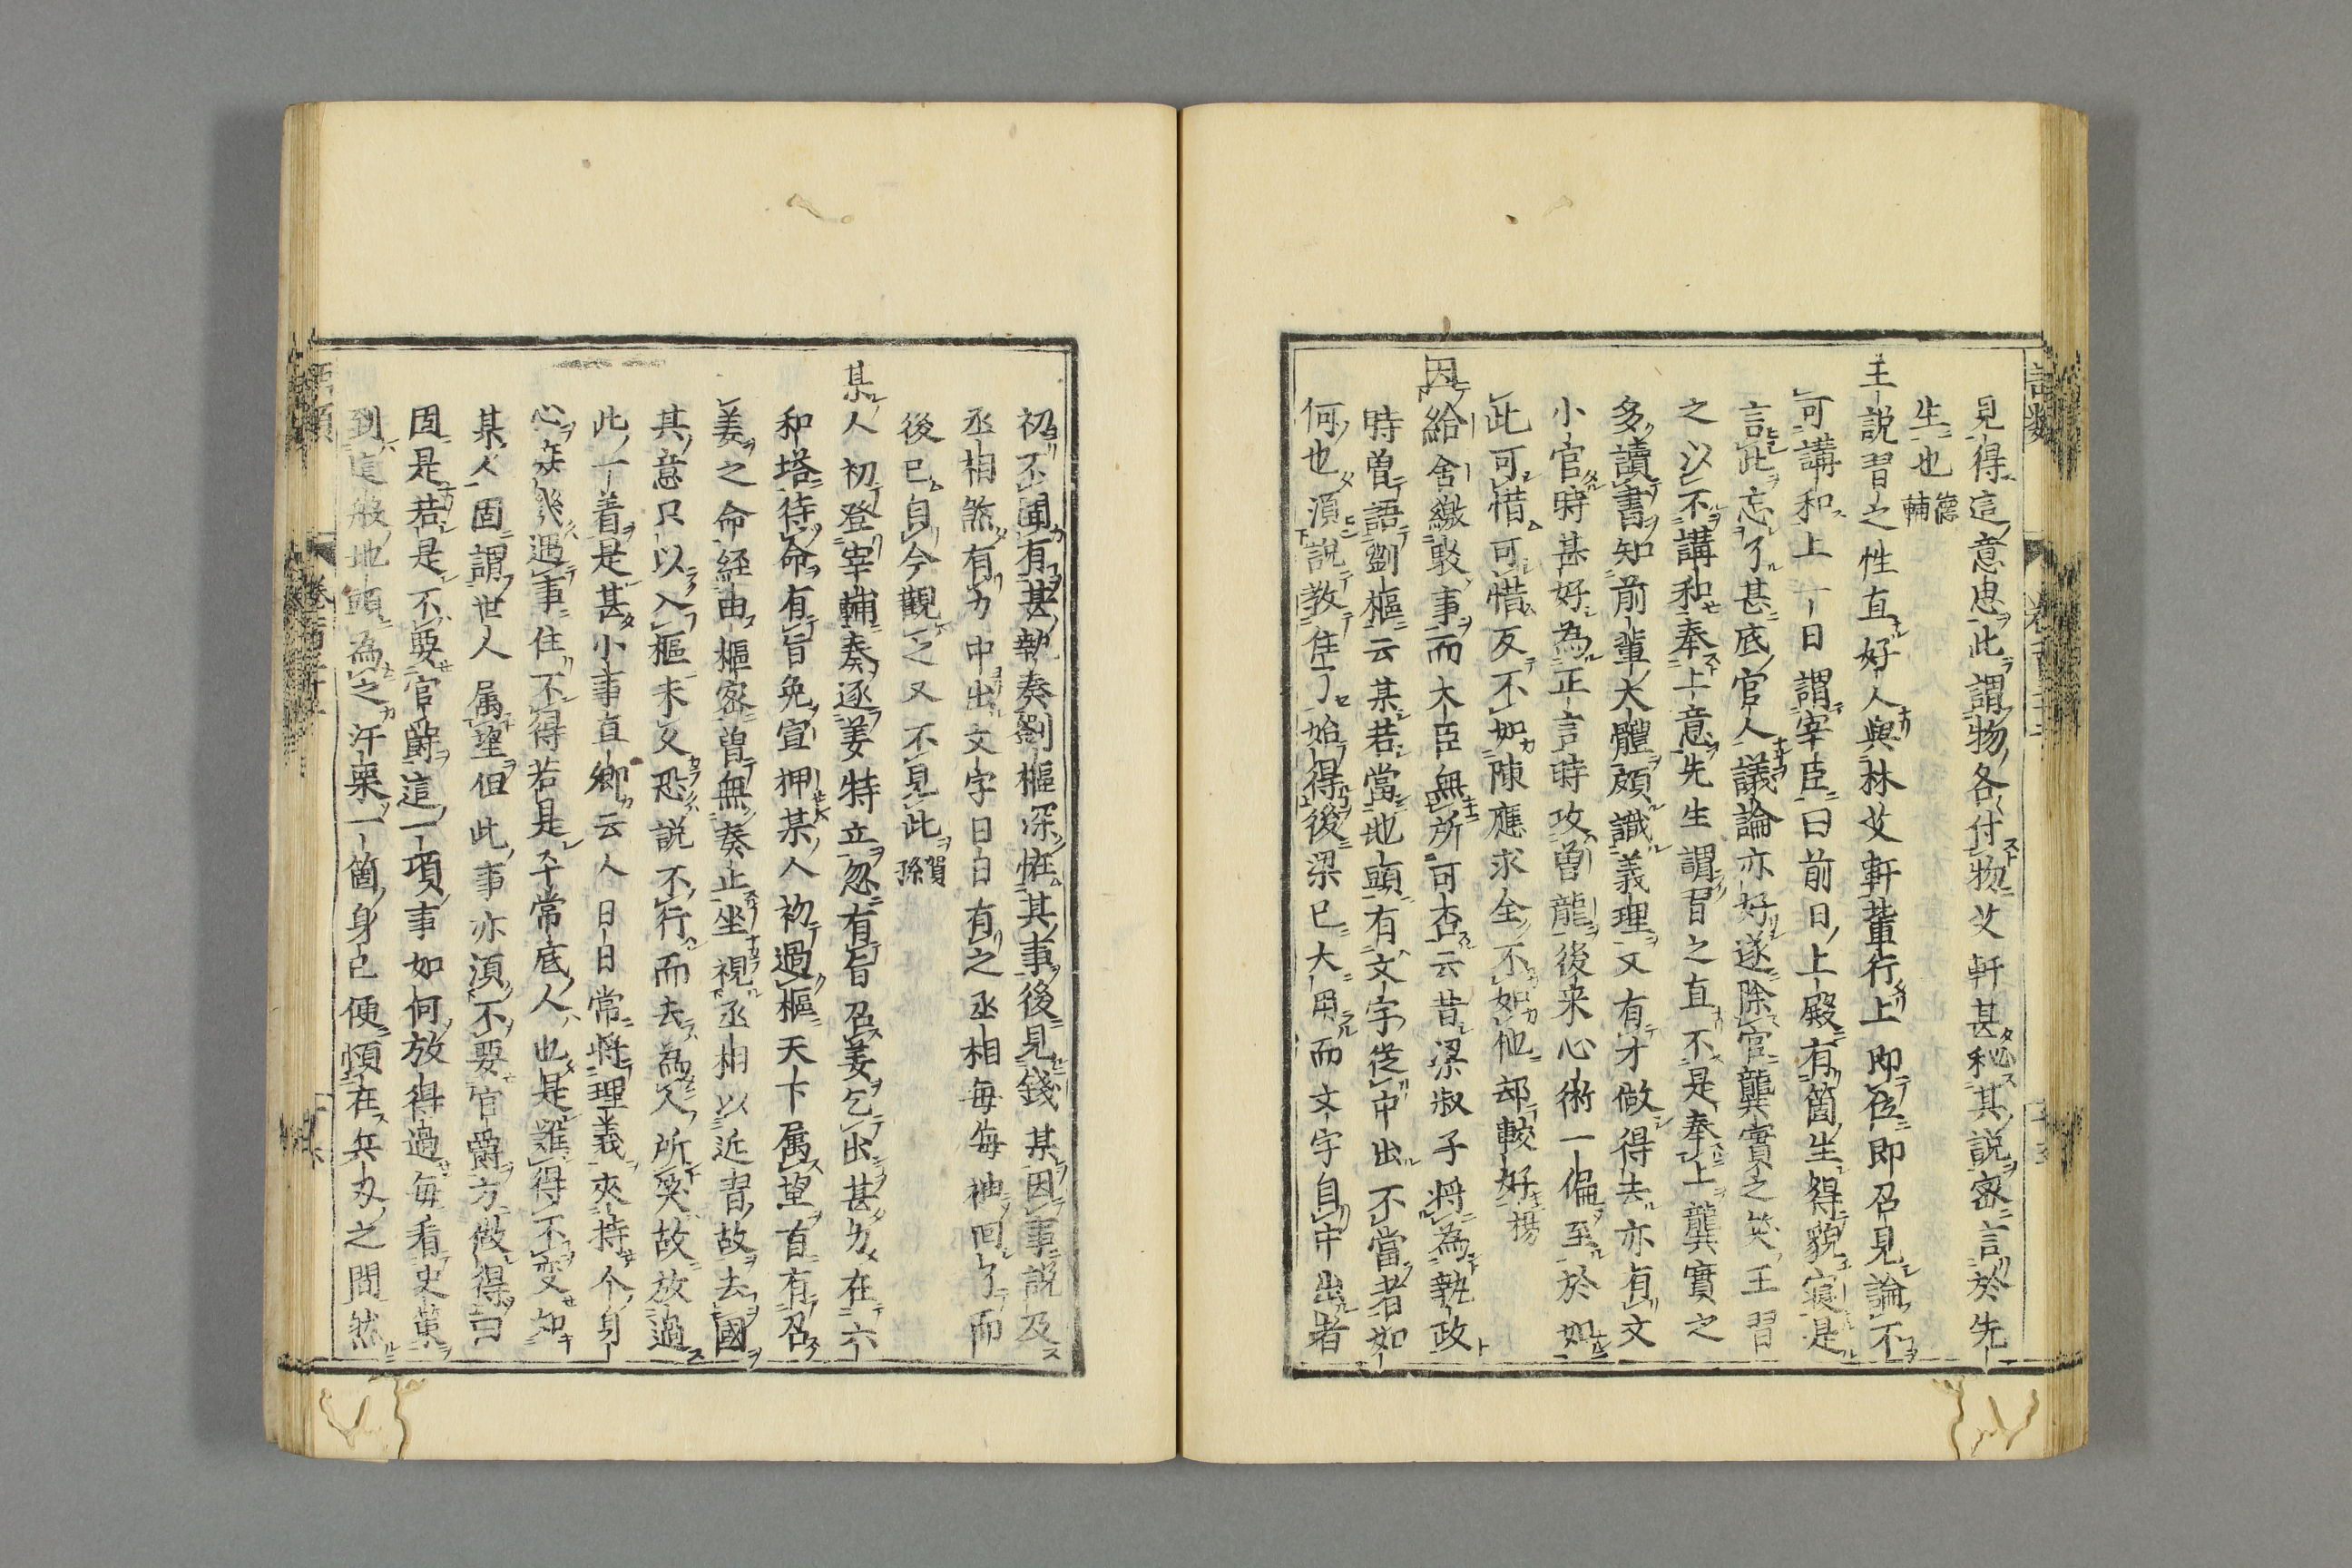 見得這意思此謂物各付物艾軒甚秘其説密言於先
生也
德輔
王説習之性直好人與林艾軒輩行上即位即召見論不
可講和上一日謂宰臣曰前日上殿有箇生得貌寝是
言此忘了甚底官人議論亦好遂除官龔實之笑王習
之以不講和奉上意先生謂習之直不是奉上龔實之
多讀書知前輩大體頗識義理又有才做得去亦有文
小官時甚好為正言時攻曾龍後来心術一偏至於如
此可惜可惜反不如陳應求全不如他却較好
揚
因給舍繳駁事而大臣無所可否云昔梁叔子将為執政
時曾語劉樞云某若當地頭有文字從中出不當者如
何也湏説教住了始得後梁已大用而文字自中出者
初不聞有甚執奏劉樞深恠其事後見錢某因事説及
丞相煞有力中出文字日日有之丞相毎毎袖回了而
後已自今觀之又不見此
賀孫
某人初登宰輔奏逐姜特立忽有旨召姜乞出甚力在六
和塔待命有旨免宣押某人初過樞天下属望首有召
姜之命経由樞密曽無奏止坐視丞相以近習故去國
其意只以入樞未久恐説不行而去為人所笑故放過
此一着是甚小事直卿云人日日常将理義夾持个身
心庶幾遇事住不得若是平常底人也是難得不变如
某人固謂世人属望但此事亦湏不要官爵方做得曰
固是若是不要官爵這一項事如何放得過毎看史䇿
到這般地頭為之汗栗一箇身己便頓在兵刃之間然
語類
卷百三十二